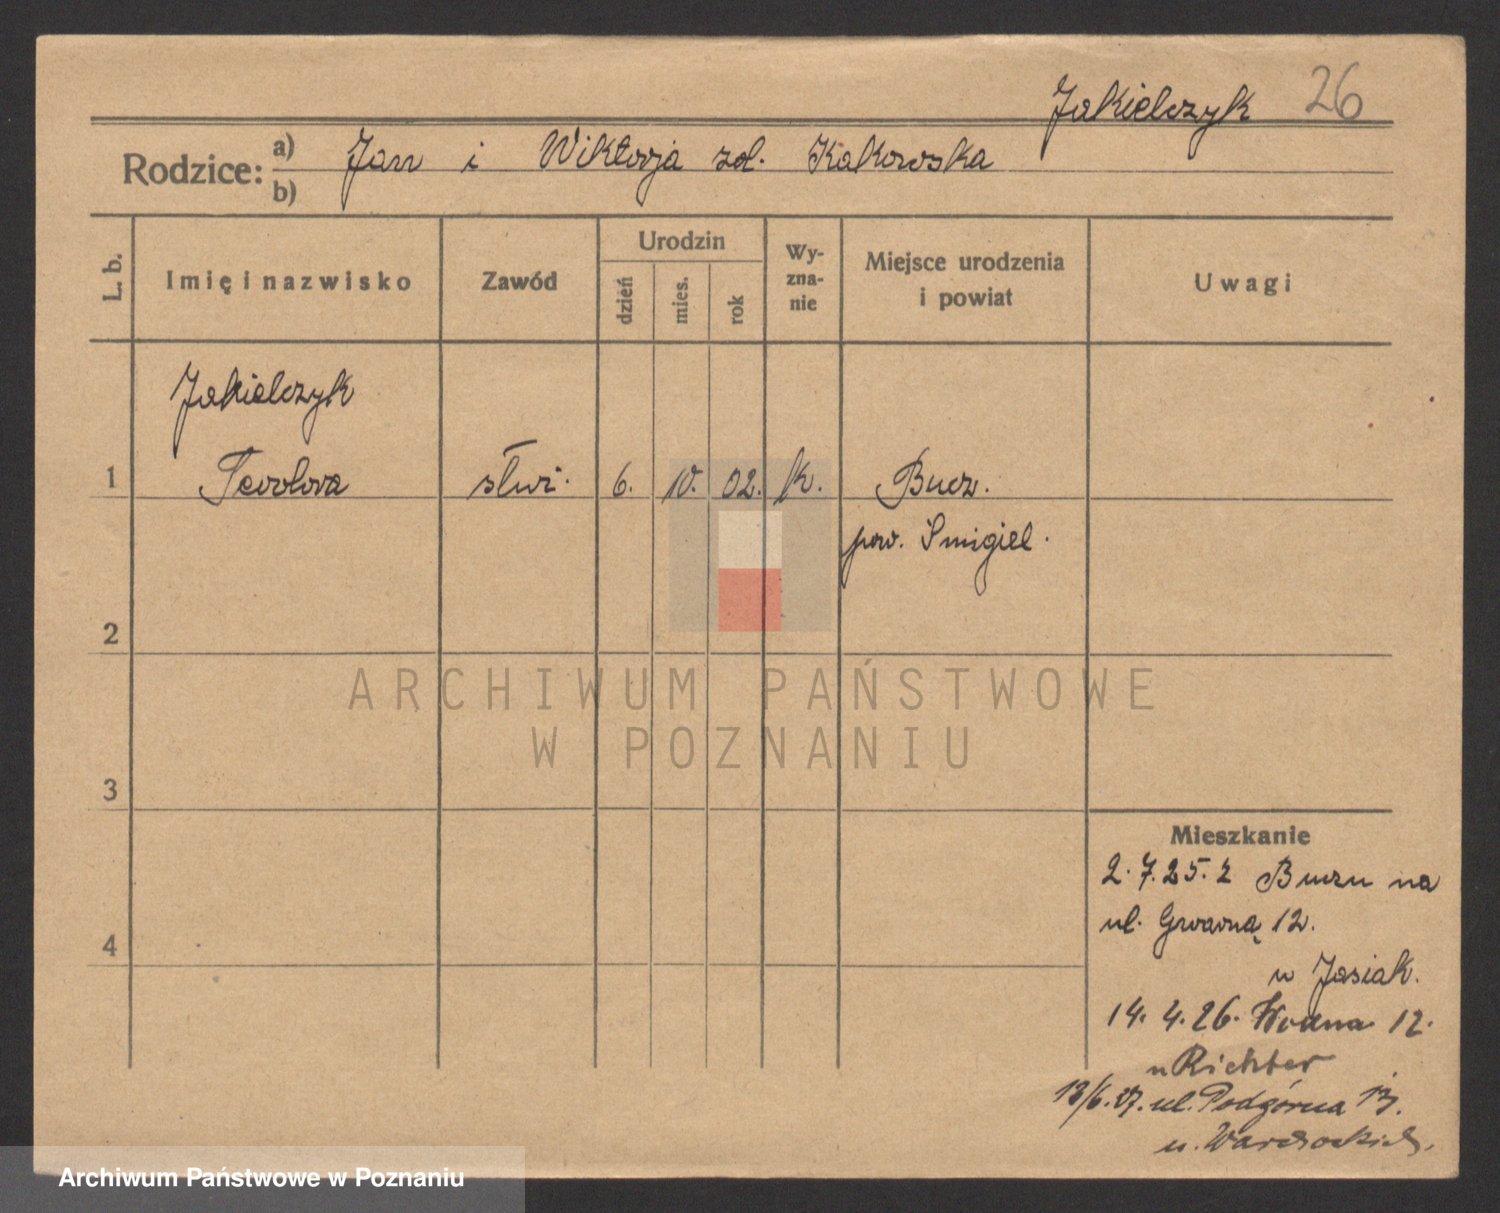 Jakielczyk 26
Rodzice: a) Jan i Wiktorja zd. Kakowska
b)
L. b.
Imię i nazwisko
Zawód
Urodzin
dzień
mies.
rok
Wy-
zna-
nie
Miejsce urodzenia
i powiat
Uwagi
Jakielczyk
1 Teodora służ. 6. 10. 02. k. Bucz.
pow. Śmigiel.
2
3
4
ARCHIWUM PAŃSTWOWE
W POZNANIU
Mieszkanie
2.7.25. z Buczu na
ul. 12.
u Jasiak.
14.4.26. Wodna 12.
u Richter
13/6.27. ul. Podgórna 13.
u.
Archiwum Państwowe w Poznaniu